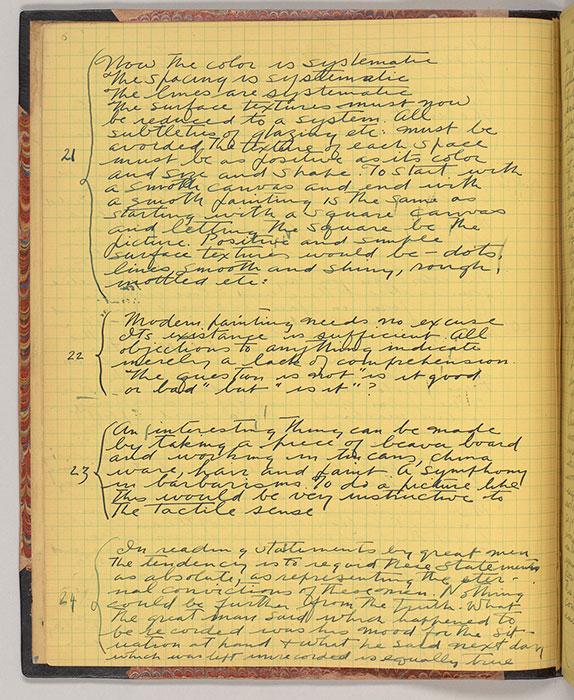 21
Now the color is systematic
The spacing is systematic
The lines are systematic
The surface textures must now
be reduced to a system. All
subtleties of glazing etc: must be
avoided the texture of each space
must be as positive as its color
and size and shape. To start with
a smooth canvas and end with
a smooth painting is the same as
starting with a square canvas
and letting the square be the
picture. Positive and simple
surface textures would be - dots,
lines, smooth and shiny, rough,
mottled etc:
22
Modern painting needs no excuse
Its existance is sufficient. All
objections to anything indicate
merely a lack of comprehension.
The question is not "is it good
or bad" but "is it"?
23
An interesting thing can be made
by taking a piece of beava board
and working in tin cans, china
ware, hair and paint. A symphony
in barbarisms. To do a picture like
this would be very instructive to
the tactile sense
24
In reading statements by great men
the tendency is to regard these statements
as absolute, as representing the eter-
nal convictions of these men. Nothing
could be further from the truth. What
the great man said which happened to
be recorded was his mood for the sit-
uation at hand + what he said next day
which was left unrecorded is equally true